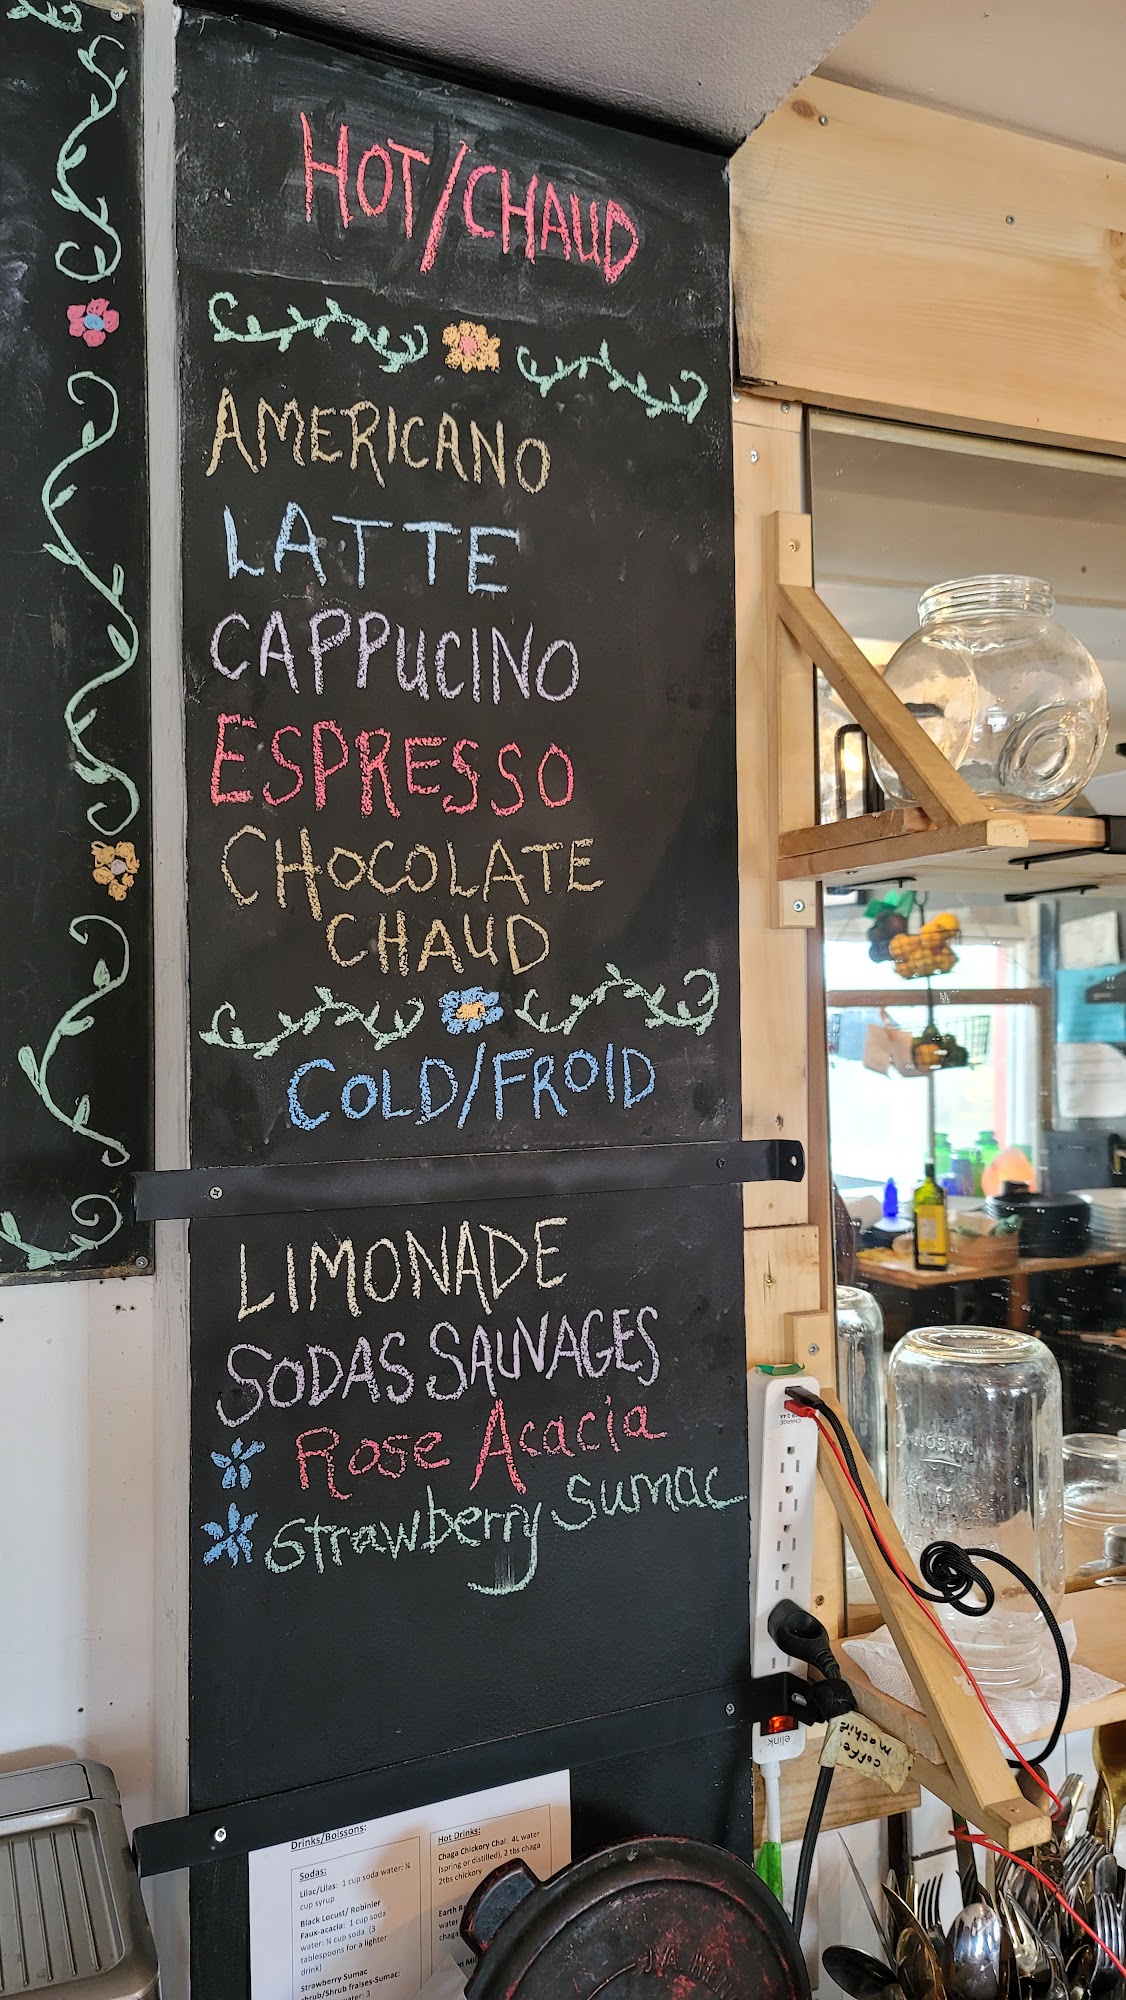 HOT/CHAUD
AMERICANO
LATTE
CAPPUCINO
ESPRESSO
CHOCOLATE
CHAUD
COLD/FROID
LIMONADE
SODAS SAUVAGES
Rose Acacia
Strawberry Sumac
CHARGE
elink
coffee
machine
Drinks/Boissons:
Sodas:
Lilac/Lilas: 1 cup soda water: ¼
cup syrup
Black Locust/ Robinier
Faux-acacia: 1 cup soda
water: ¼ cup soda (3
tablespoons for a lighter
drink)
Strawberry Sumac
shrub/Shrub fraises-Sumac:
water: 3
Hot Drinks:
Chaga Chickory Chai: 4L water
(spring or distilled), 2 tbs chaga
2tbs chickory
Earth
water
chaga